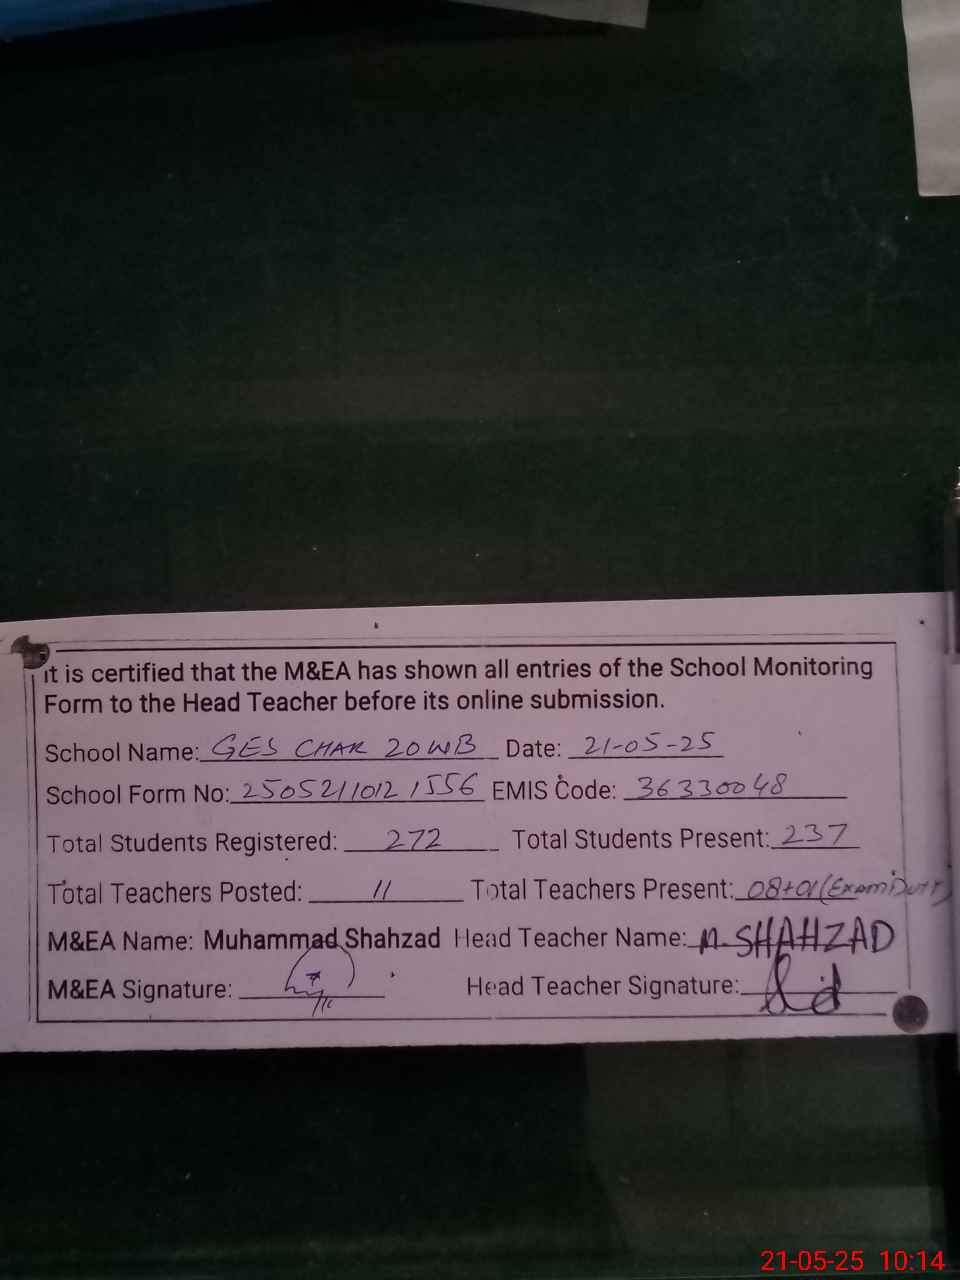 It is certified that the M&EA has shown all entries of the School Monitoring
Form to the Head Teacher before its online submission.
School Name: GES CHAK 20 WB Date: 21-05-25
School Form No: 25052110121556 EMIS Code: 36330048
Total Students Registered: 272 Total Students Present: 237
Total Teachers Posted: 11 Total Teachers Present: 08+01 (Exam Duty)
M&EA Name: Muhammad Shahzad Head Teacher Name: M. SHAHZAD
M&EA Signature: Head Teacher Signature:
21-05-25 10:14